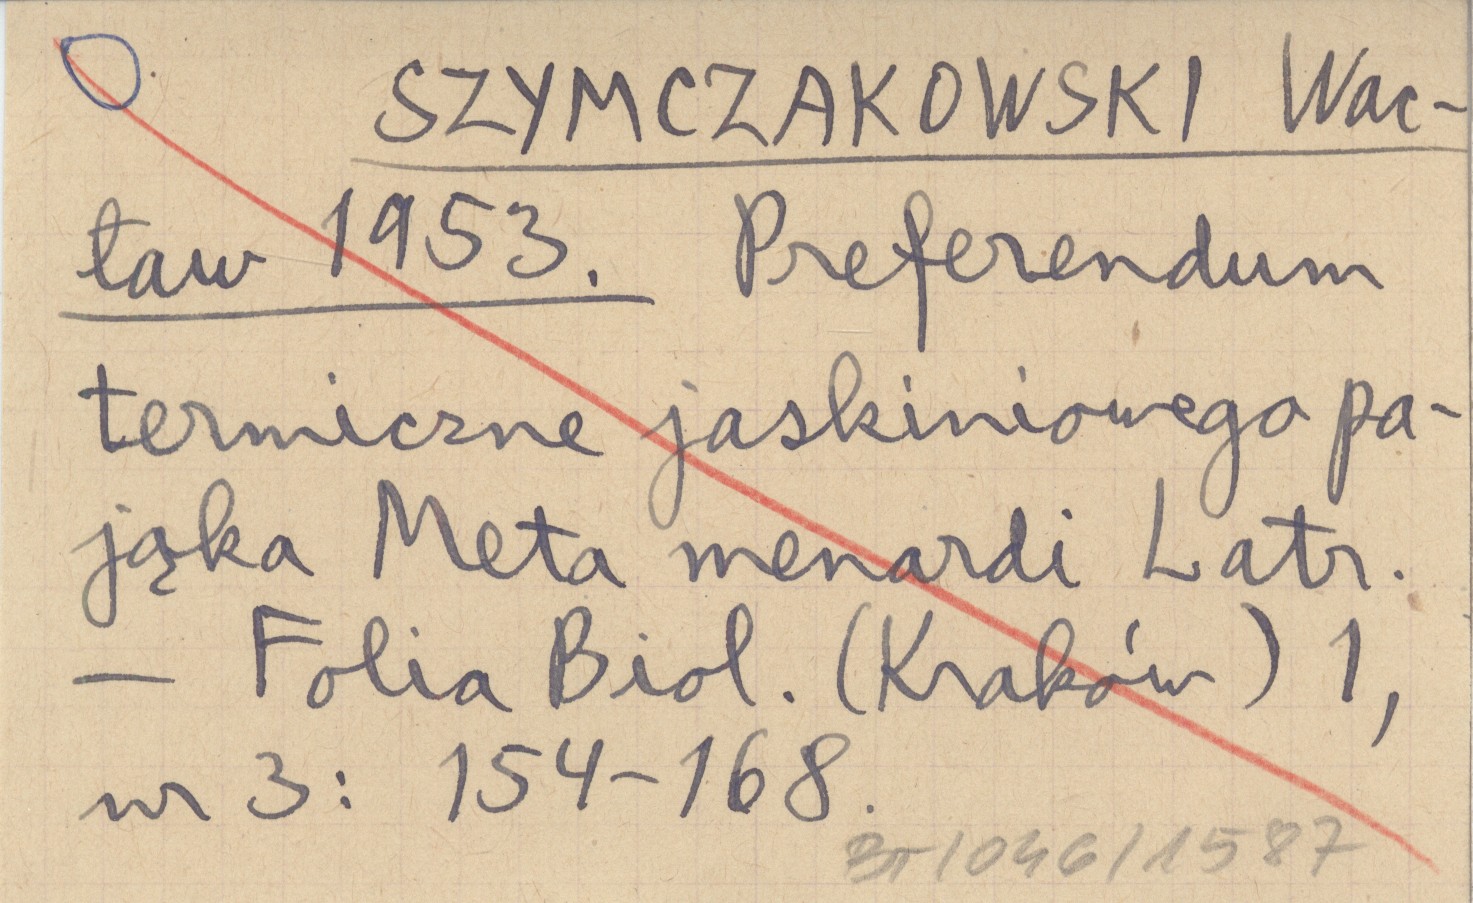 SZYMCZAKOWSKI Wac-
ław 1953. Preferendum
termiczne jaskiniowego pa-
jąka Meta menardi Latr.
— Folia Biol. (Kraków) 1,
nr 3: 154-168.
/1587